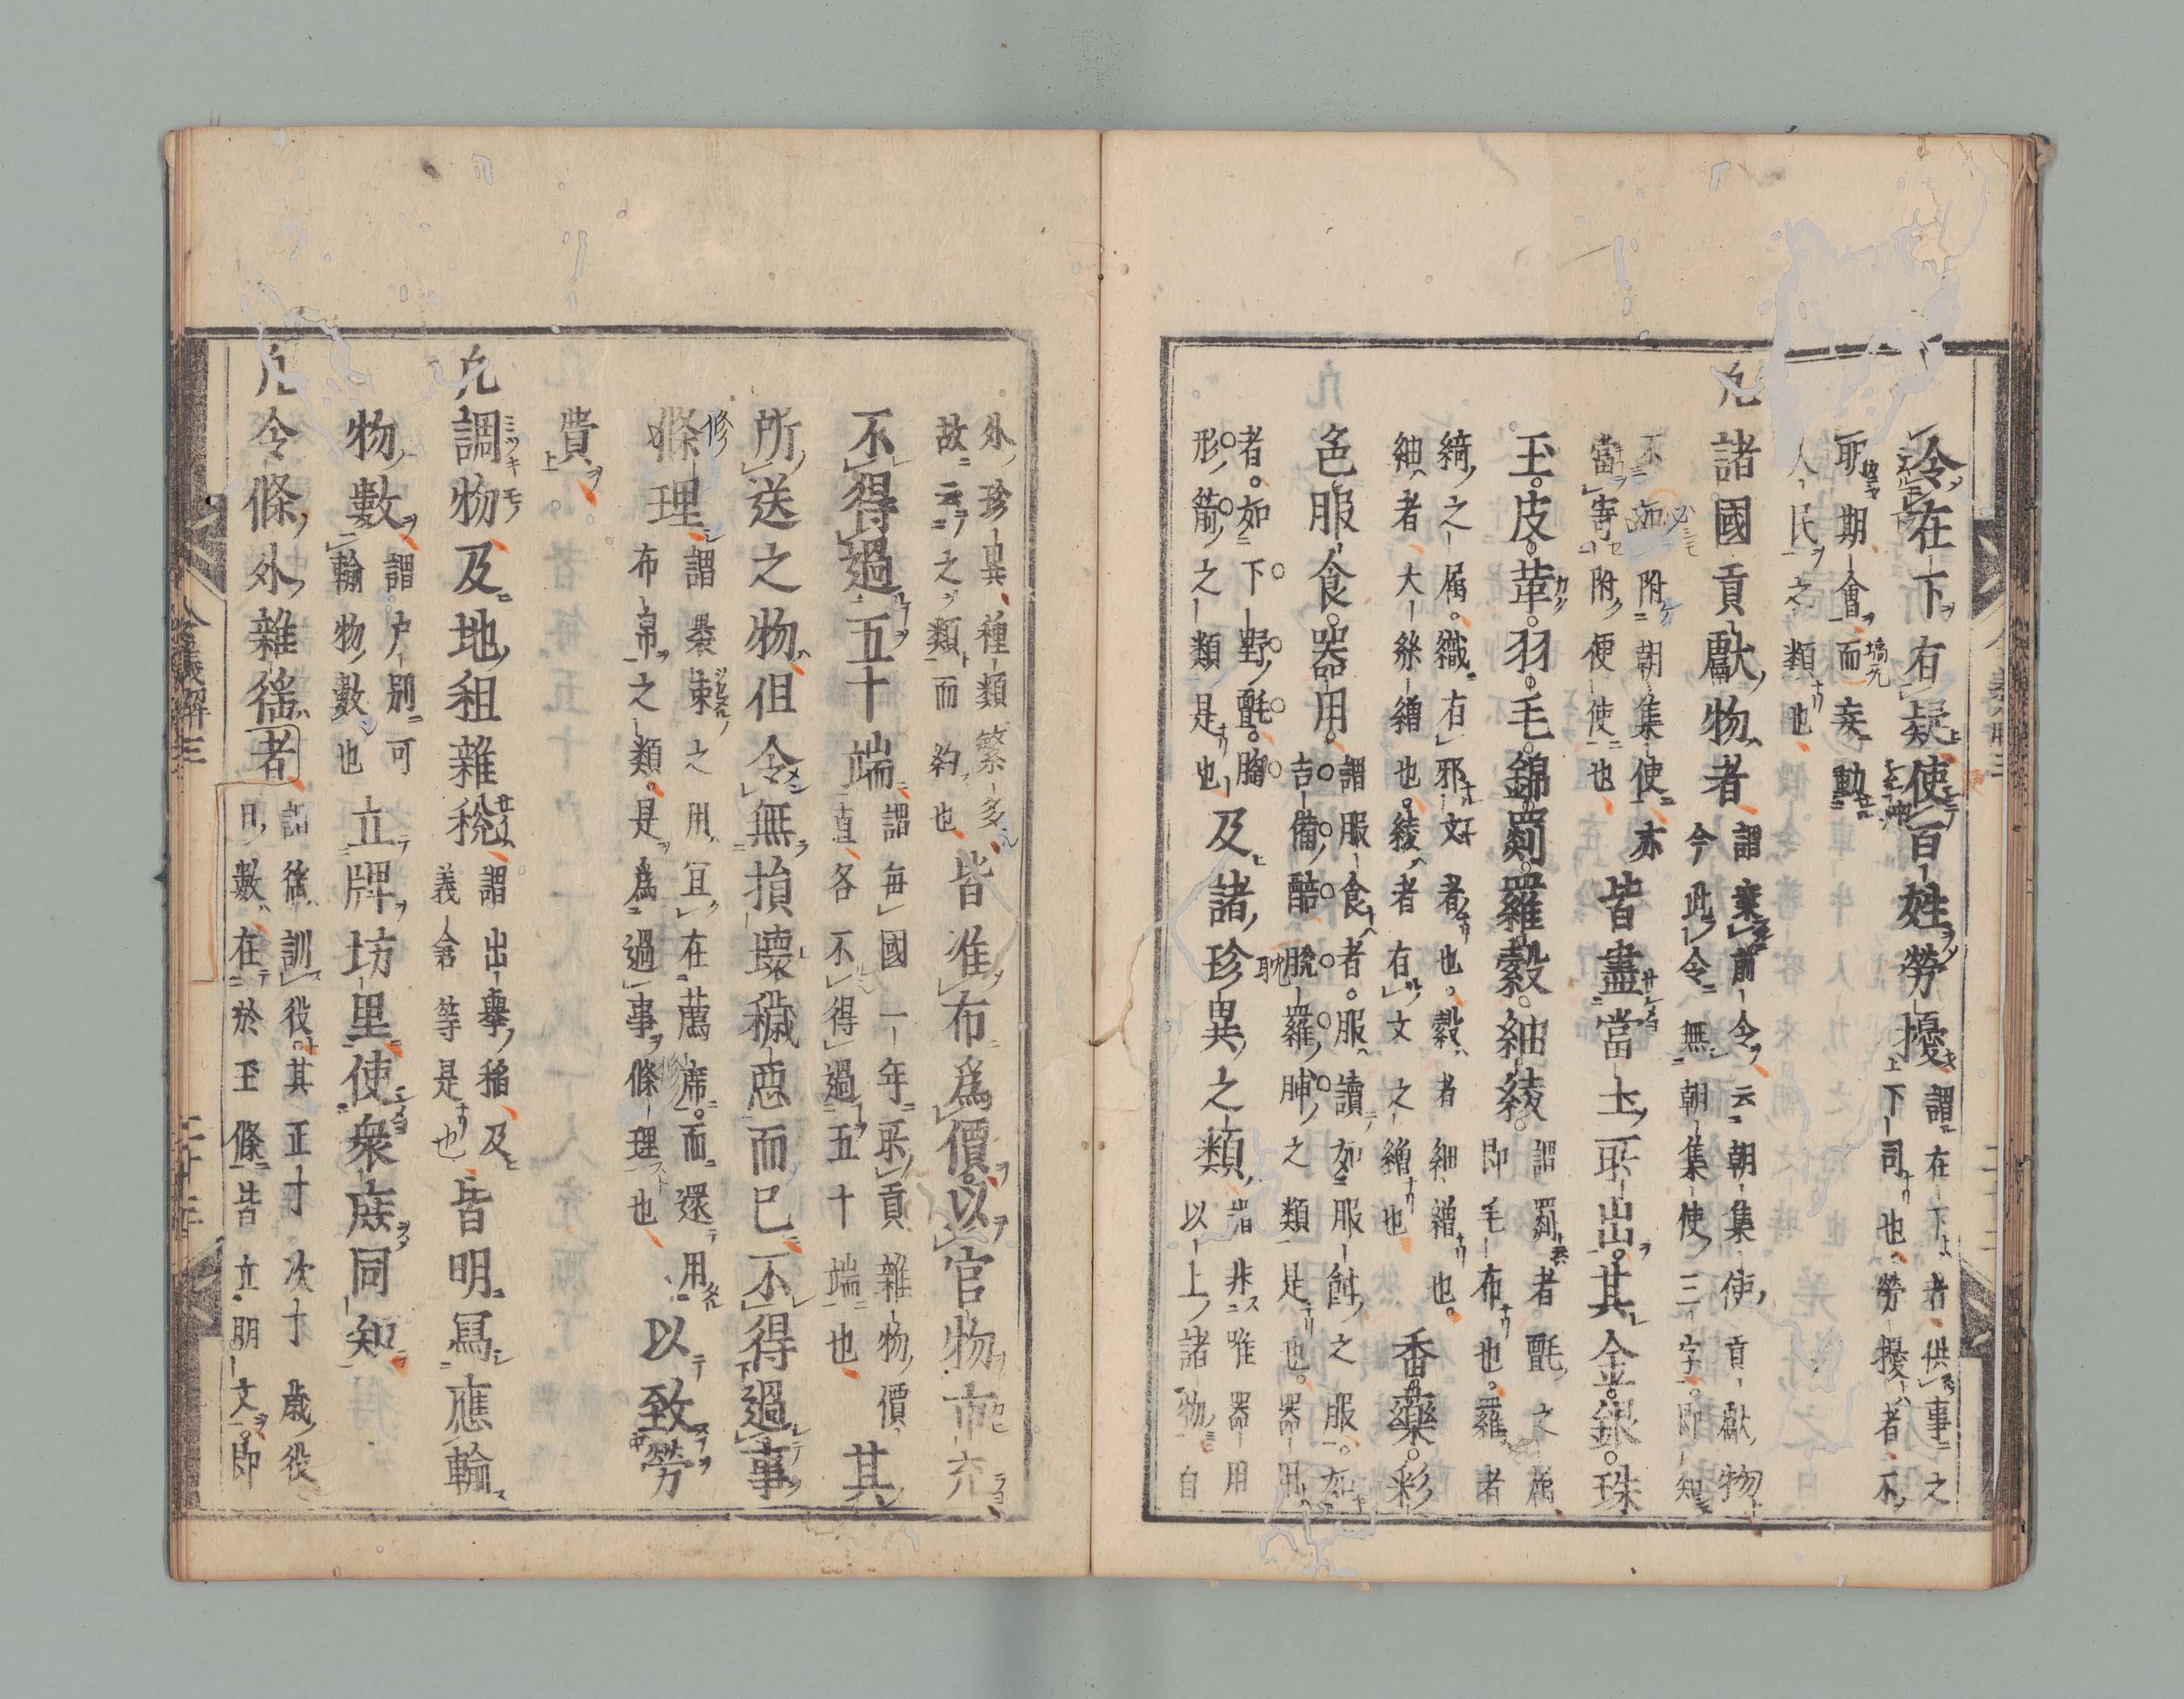 令在下有疑使百姓勞擾
謂在下者供事之
下司也勞擾者不
取期會而妄動
人民之類也
凢諸國貢獻物者
謂案前令云朝集使貢獻物
今此令無朝集使三字即知
不必附朝集使亦
當寄附便使也
皆盡當土所出其金銀珠
玉皮革羽毛錦罽羅縠紬綾
謂罽者氈之属
即毛布也羅者
綺之属織有邪文者也縠者細繒也
紬者大絲繒也綾者有文之繒也
香藥彩
色服食器用
謂服食者服讀如服餌之服如
吉備醋脫羅脯之類是也器用
者如下野氈胸
形箭之類是也
及諸珍異之類
皆非唯器用
以上諸物自
外珍異種類繁多
故云之類而約也
皆准布爲價以官物市充
不得過五十端
謂毎國一年所貢雜物價
直各不得過五十端也
其
所送之物但令無損壞穢惡而已不得過事
修
條理
謂裹束之用冝在薦席而還用
布帛之類是爲過事條理也
以致勞
費
凢調物及地租雜稅
謂出擧稲及
義倉等是也
皆明寫應輸
物數
謂户別可
輸物數也
立牌坊里使衆庶同知
凢令條外雜徭者
謂徭訓役其正丁次丁歳役
日數在於至條皆立明文即
令義解三